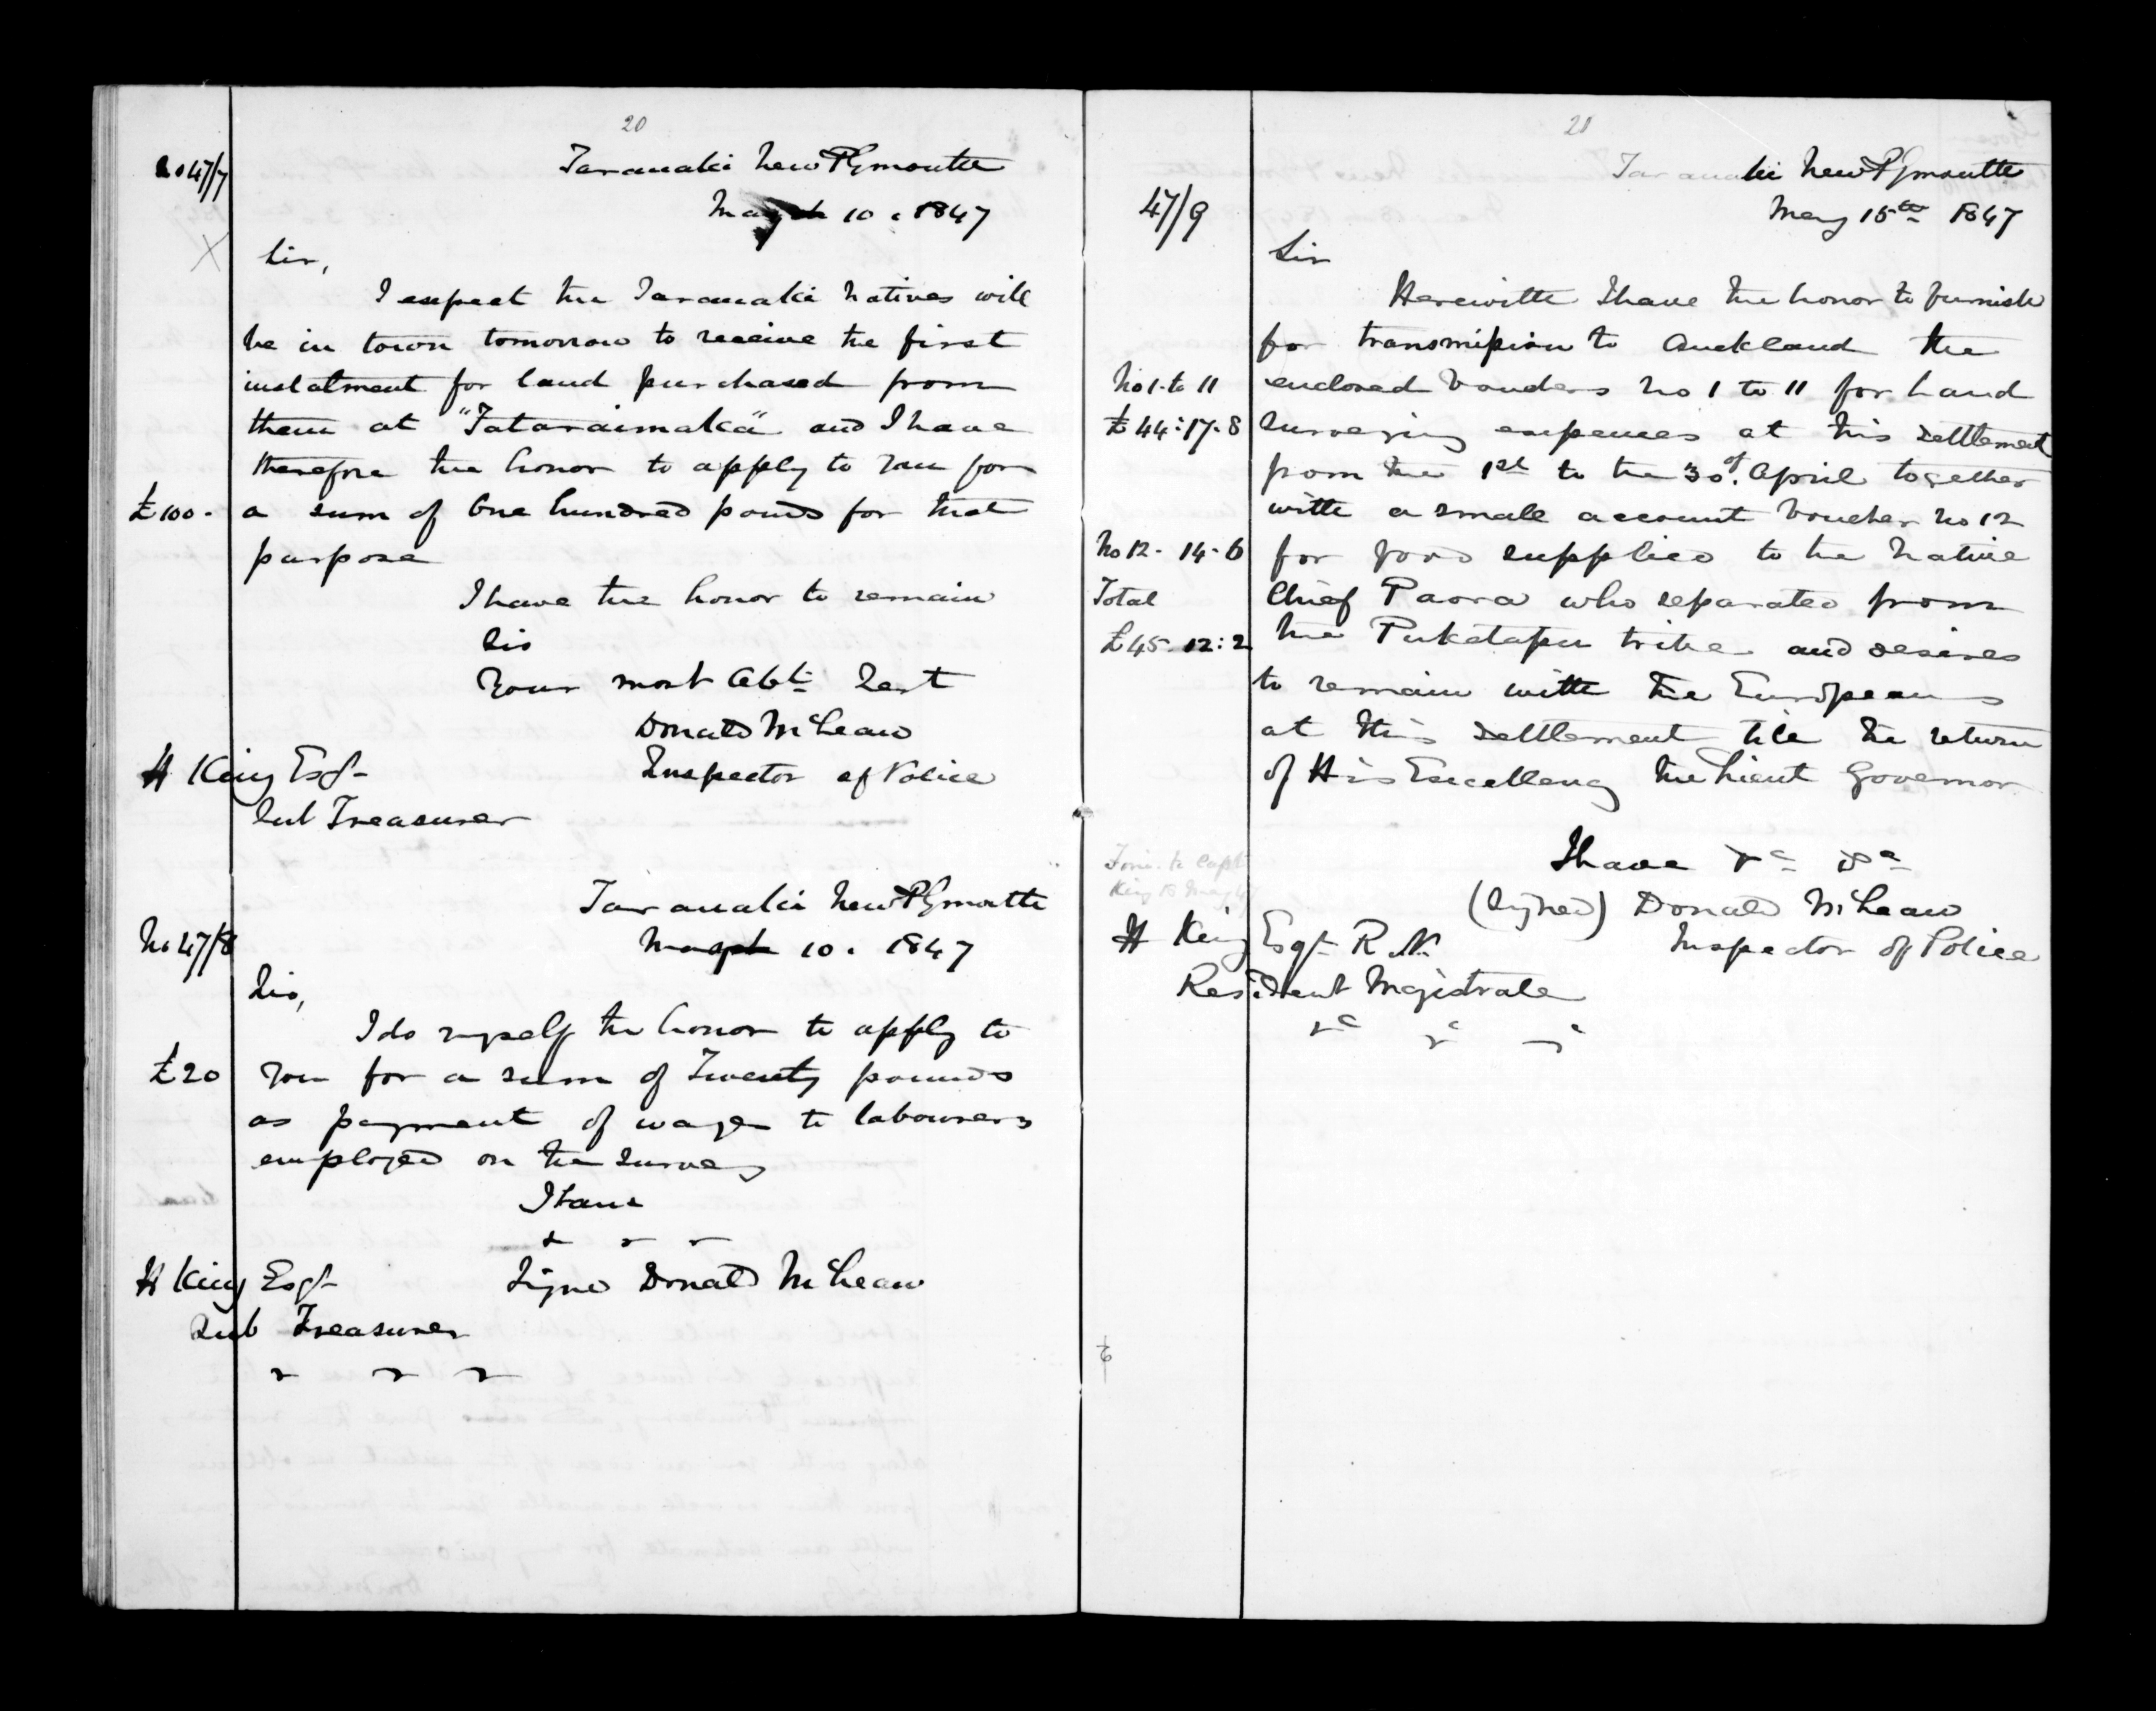 20
No 47/7
Taranaki New Plymouth
May 10. 1847
X
Sir,
I expect the Taranaki Natives will
be in town tomorrow to receive the first
instalment for land purchased from
them at "Tataraimaka" and I have
therefore the honor to apply to you for
£100. a sum of One hundred pounds for that
purpose
I have the honor to remain
Sir
Your most Obt Sert
Donald McLean
H King Esqr Inspector of Police
Sub Treasurer
Taranaki New Plymouth
No 47/8 May 10. 1847
Sir,
I do myself the honor to apply to
£20 you for a sum of Twenty pounds
as payment of wages to labourers
employed on the survey
I have
H King Esqr Signed Donald McLean
Sub Treasurer
21
Taranaki New Plymouth
47/9 May 15th 1847
Sir
Herewith I have the honor to furnish
for transmission to Auckland the
No 1 to 11 enclosed Vouchers No 1 to 11 for Land
£44:17:8 Surveying expences at this Settlement
from the 1st to the 30 of April together
with a small account Voucher No 12
No 12 - 14-6 for food supplied to the Native
Total Chief Paora who separated from
£45.12:2 the Puketapu tribe and desires
to remain with the Europeans
at this Settlement till the return
of His Excellency the Lieut Governor
I have &c &c
(Signed) Donald McLean
H King Esqr R.N. Inspector of Police
Resident Magistrate
&c &c &c